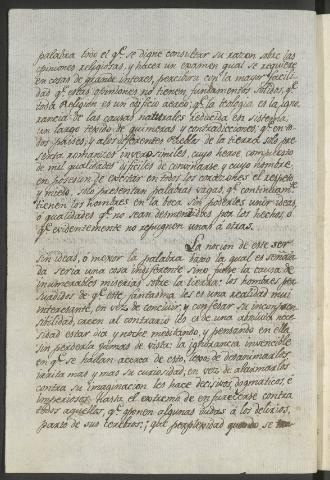 palabra todo el q.e se digne consultar su razon sobre las
opiniones religiosas, y hacer un examen qual se requiere
en cosas de grande interes, percibira con la mayor facili-
dad q.e estas opiniones no tienen fundamentos solidos, q.e
toda Religion es un edificio aereo; q.e la teologia es la igno-
rancia de las causas naturales reducida en sistema:
un largo texido de quimeras y contradicciones, q.e en to-
dos paises, y a los diferentes Pueblos de la tierra solo pre-
senta romances inverosimiles, cuyo heroe compuesto
de mil qualidades dificiles de convinarse, y cuyo nombre
en posesion de excitar en todos los corazones el respeto
y miedo, solo presentan palabras vagas, q.e continuam.te
tienen los hombres en la boca sin poderles unir ideas,
ó qualidades q.e no sean desmentidas por los hechos, ó
q.e evidentemente no repugnen unas á otras.
La nocion de este ser
sin ideas, ó mejor la palabra bajo la qual es señala-
da seria una cosa indiferente sino fuese la causa de
innumerables miserias sobre la tierra: los hombres per-
suadidos de q.e este fantasma les es una realidad mui
interesante, en vez de concluir, y confesar su incompren-
sibilidad, creen al contrario les es de una absoluta nece-
sidad estar dia y noche meditando, y pensando en ella
sin perderla jamas de vista: la ignorancia invencible
en q.e se hallan acerca de esto, lejos de desanimarlos,
irrita mas y mas su curiosidad; en vez de alarmarlos
contra su imaginacion les hace decisivos, dogmaticos, é
imperiosos, hasta el extremo de enfurecerse contra
todos aquellos, q.e oponen algunas dudas á los delirios,
parto de sus cerebros; ¡que perplexidad quando se